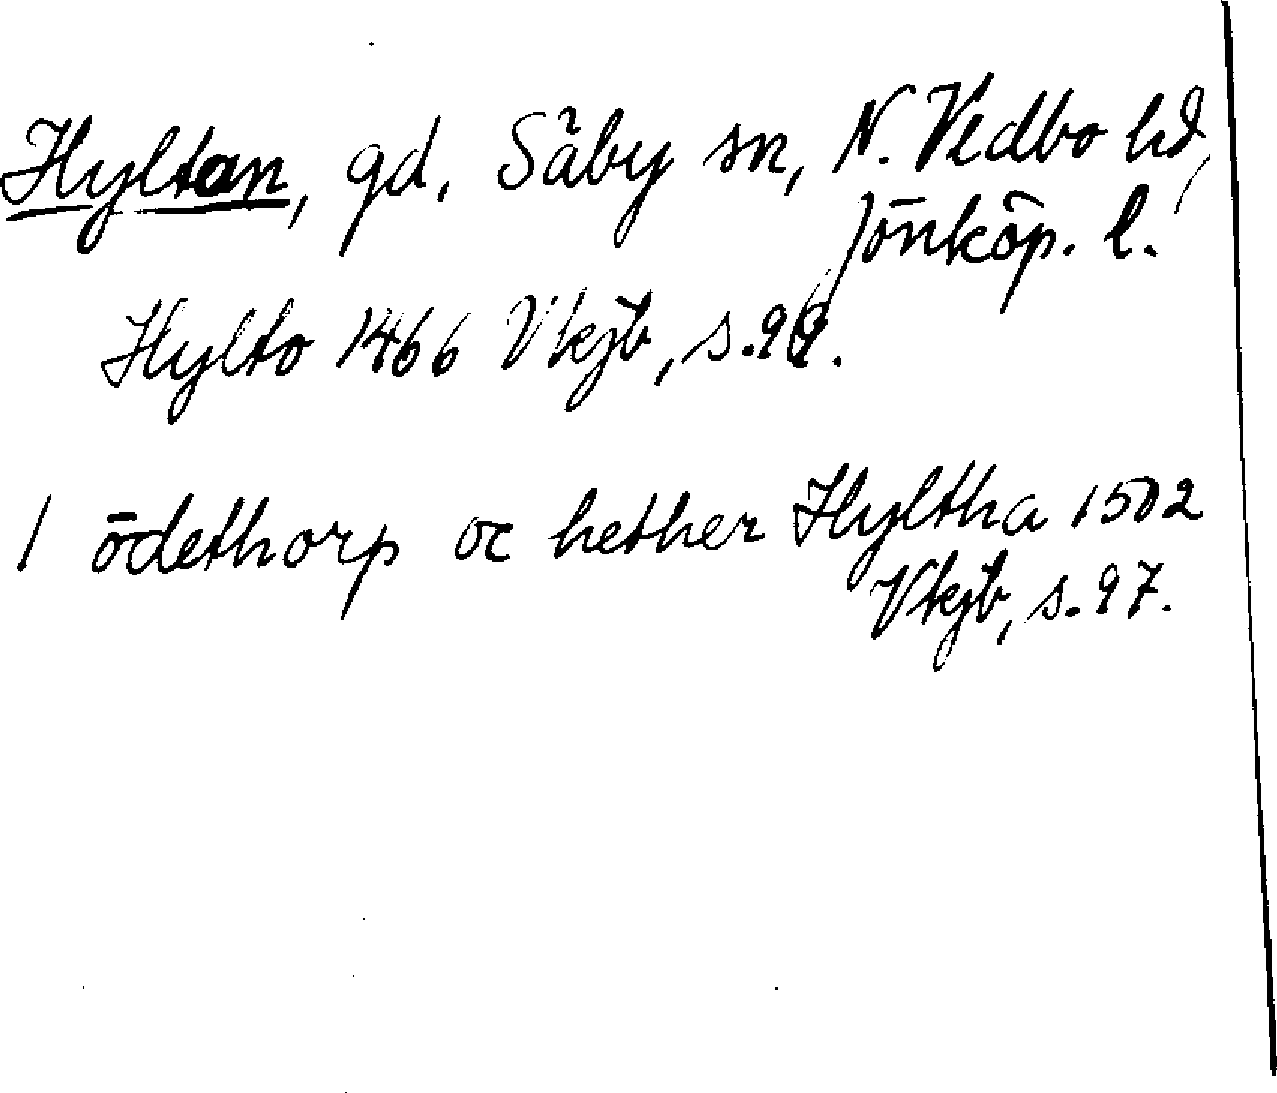 Hyltan, gd, Säby sn, N. Vedbo hd,
Jönköp. l.
Hylto 1466 Vkjb, s.
1 ödethorp oc hether Hyltha 1502
Vkjb, s. 97.